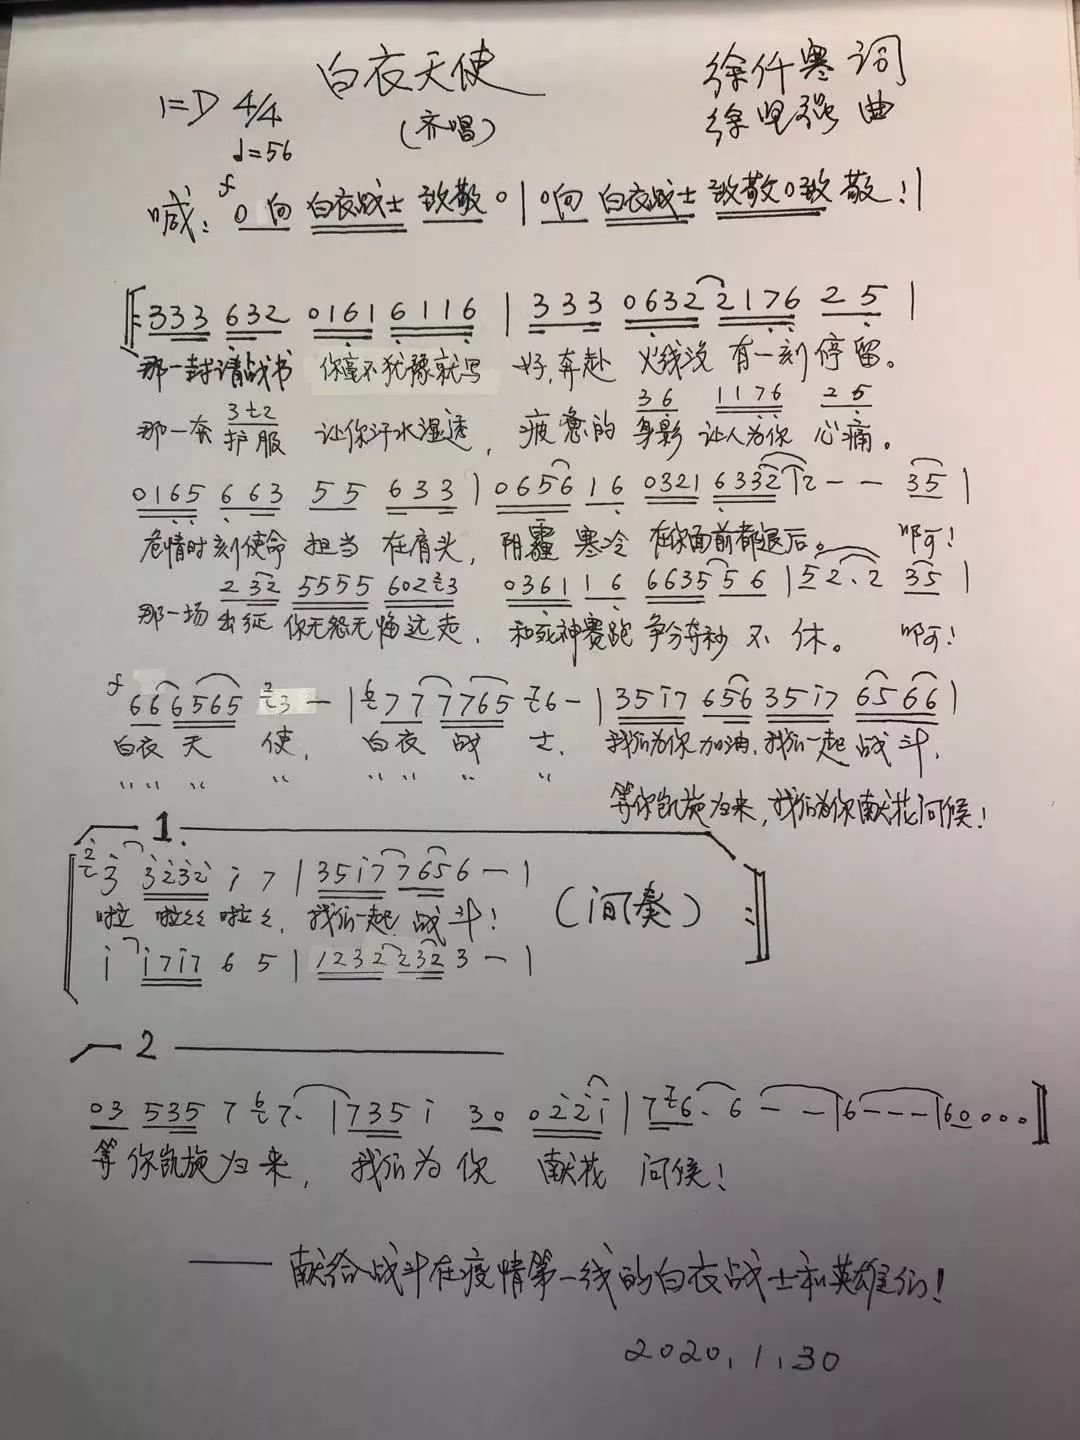 白衣天使
(齐唱)
徐仟寒 词
徐坚强 曲
1=D 4/4
♩=56
喊: f 0 向 白衣战士 致敬 0 | 0向 白衣战士 致敬0致 敬! |
333 632 0161 6116 | 333 0632 2176 2 5 |
那一封请战书 你毫不犹豫就写 好,奔赴 火线没 有一刻停留。
3 2 36 1176 25
那一套 护服 让你汗水湿透,疲惫的 身影 让人为你 心痛。
0165 663 55 633 | 0656 16 0321 6332 12 - - 35 |
危情时刻使命 担当 在肩头, 阴霾 寒冷 在你面前都退后。 啊!
2 32 5555 6023 0361 1 6 6635 5 6 | 5 2. 2 35 |
那一场 出征 你无怨无悔远走, 和死神赛跑 争分夺秒 不 休。 啊!
f 666565 3 - | 77 7765 6 - | 35i7 656 35i7 6566 |
白衣 天 使, 白衣 战 士, 我们为你 加油,我们一起 战 斗,
" " " " " " " "
等你凯旋归来,我们为你献花问候!
1.
3 3232 i 7 | 35i7 7656 - |
啦 啦〻〻 啦〻, 我们一起 战 斗!
(间奏)
i i7i7 6 5 | 1232 232 3 - |
2
03 535 7 7. | 735 i 30 022i | 76. 6 - - | 6 - - - | 60 0 0 0
等 你凯旋 归 来, 我们为 你 献花 问候!
—— 献给战斗在疫情第一线的白衣战士和英雄们!
2020.1.30